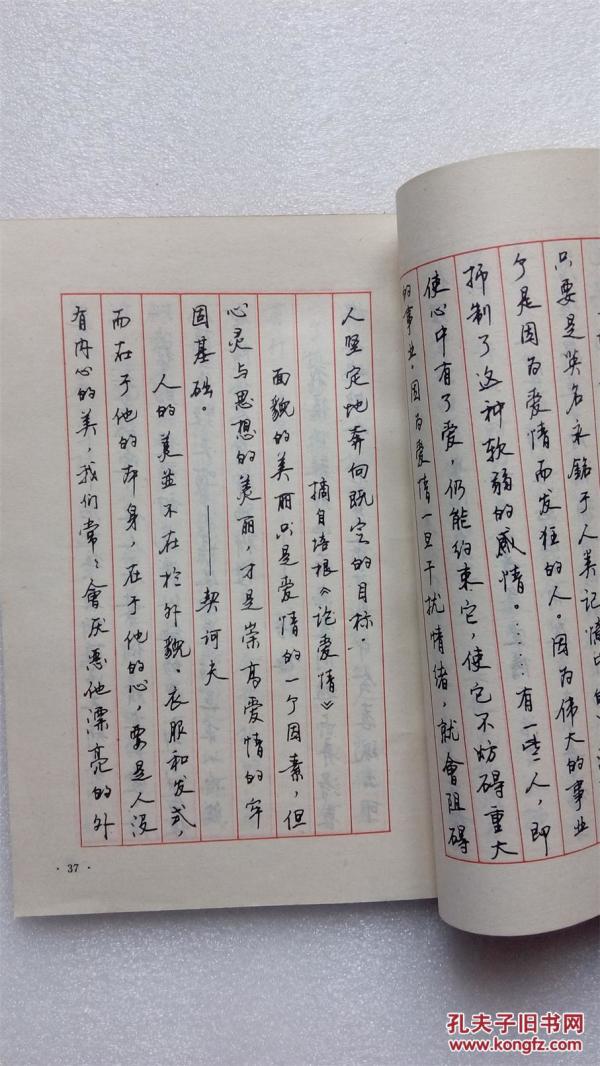 只要是英名永铭于人类记忆中的
个是因为爱情而发狂的人。因为伟大的事业
抑制了这种软弱的感情。……有一些人，即
使心中有了爱，仍能约束它，使它不妨碍重大
的事业。因为爱情一旦干扰情绪，就會阻碍
人坚定地奔向既定的目标。
摘自培根《论爱情》
面貌的美丽只是爱情的一个因素，但
心灵与思想的美丽，才是崇高爱情的牢
固基础。 ——契诃夫
人的美並不在於外貌、衣服和发式，
而在于他的本身，在于他的心，要是人没
有内心的美，我们常〻會厌恶他漂亮的外
· 37 ·
孔夫子旧书网
www.kongfz.com